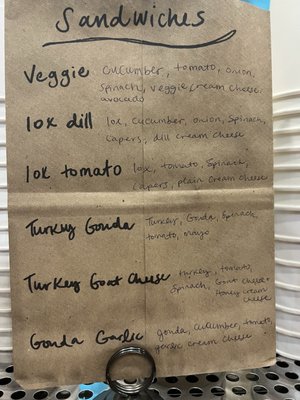 Sandwiches
Veggie cucumber, tomato, onion,
spinach, veggie cream cheese,
avocado
lox dill lox, cucumber, onion, spinach,
capers, dill cream cheese
lox tomato lox, tomato, spinach,
capers, plain cream cheese
Turkey Gouda Turkey, Gouda, spinach,
tomato, mayo
Turkey Goat Cheese turkey, tomato,
spinach, Goat cheese +
Honey cream
cheese
Gouda Garlic gouda, cucumber, tomato,
garlic cream cheese